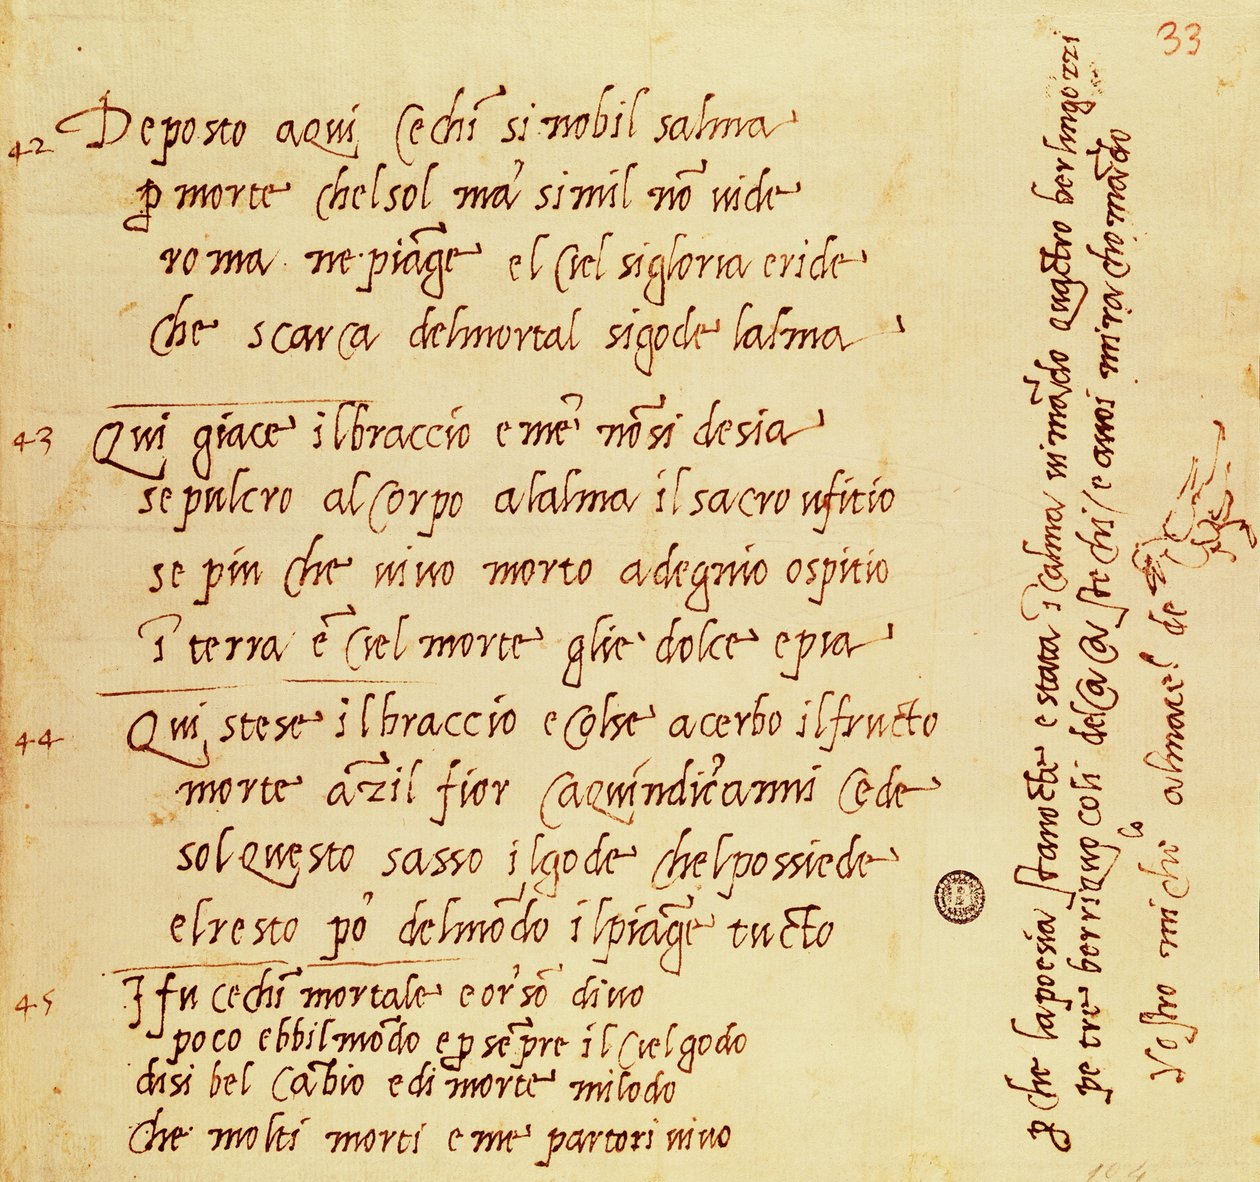 33
42 Deposto a qui cechĩ si nobil salma
p̱ morte chelsol ma' simil nõ vide
roma ne piãge el ciel si gloria e ride
che scarca del mortal si gode lalma
43 Qui giace il braccio e me' nõ si desia
sepulcro al corpo a lalma il sacro ufitio
se piu che vivo morto a degnio ospitio
ĩ terra e ̃ ciel morte gli e dolce e pia
44 Qui stese il braccio e colse acerbo il fructo
morte ãzi il fior ca quindic'anni cede
sol questo sasso il gode che l possiede
e l resto po' del mõdo il piãge tucto
45 I fu cechĩ mortale e or' sõ divo
poco ebbi l mõdo e p̱ sẽpre il ciel godo
di si bel cãbio e di morte mi lodo
che molti morti e me partori vivo
p̱che la poesia stanocte e stata ĩ calma vi mãdo quactro berlingozzi
pe tre berriquocoli del cacastechi e a voi mi rachomãdo
Vostro michẽlo al macel de